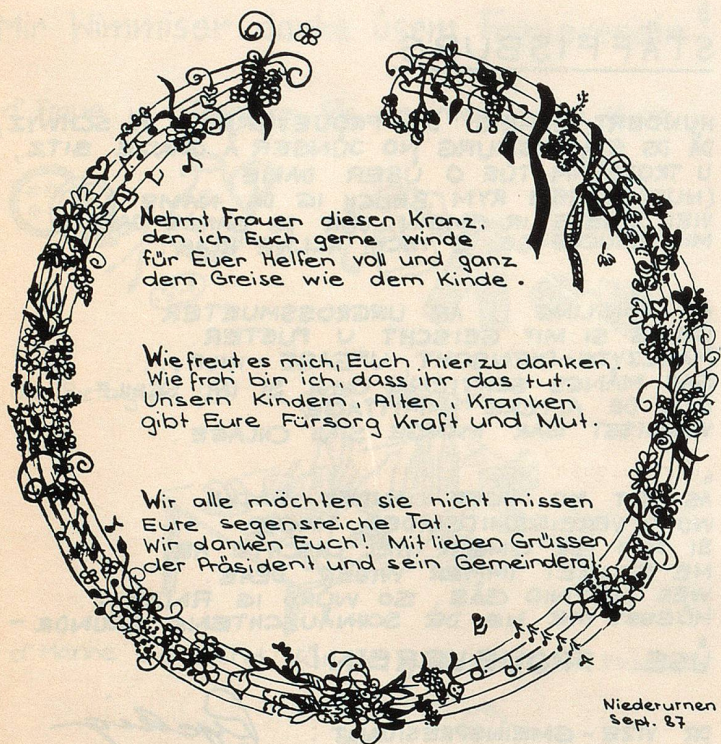 Nehmt Frauen diesen Kranz,
den ich Euch gerne winde
für Euer Helfen voll und ganz
dem Greise wie dem Kinde.
Wie freut es mich, Euch hier zu danken.
Wie froh bin ich dass ihr das tut.
Unsern Kindern, Alten, Kranken
gibt Eure Fürsorg Kraft und Mut.
Wir alle möchten sie nicht missen
Eure segensreiche Tat.
Wir danken Euch! Mit lieben Grüssen
der Präsident und sein Gemeinderat
Niederurnen
Sept. 87